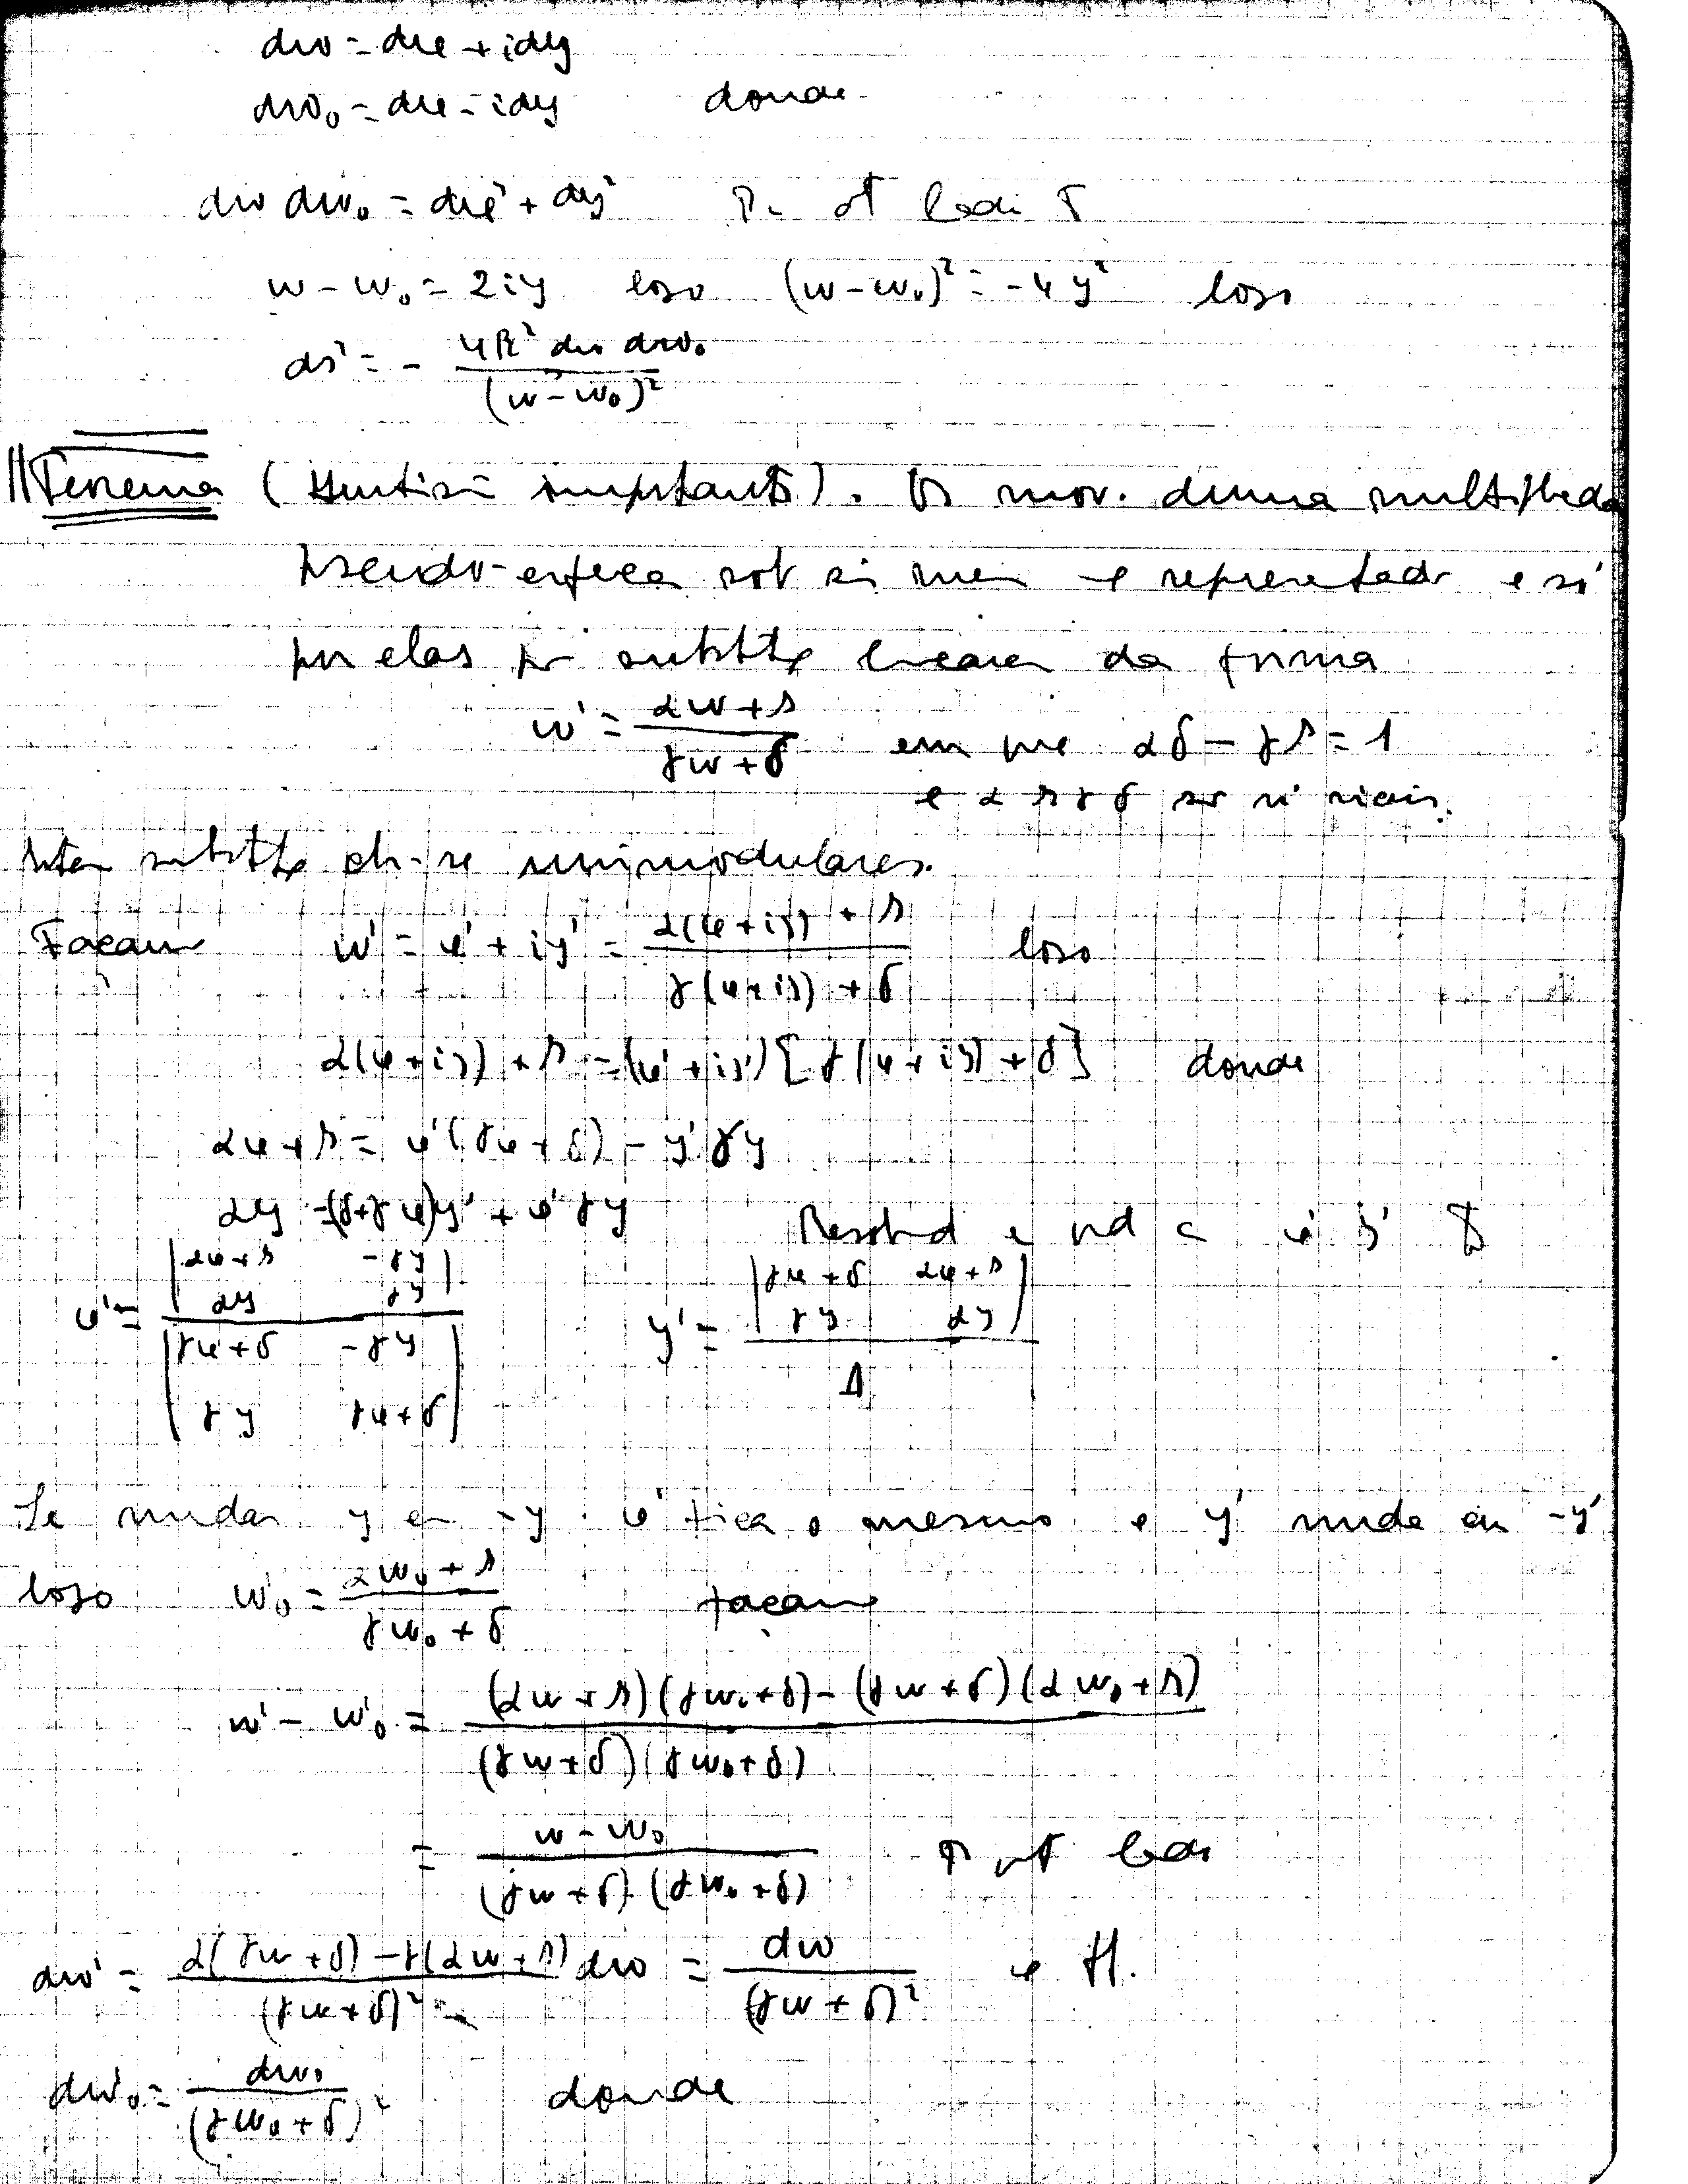 dw = dx + idy
dw₀ = dx - idy donde
dw dw₀ = dx² + dy² P. ot lado
w - w₀ = 2iy logo (w-w₀)² = -4y² logo
ds² = - 4R² dw dw₀ / (w-w₀)²
Teorema ( importante). Os mov. duma multiplicd
pseudo-esferica sob si mesma e representado e só
por elas por substtt lineares da forma
w' = (αw+β)/(γw+δ) em que αδ - γβ = 1
e α β γ δ são nº riais.
Estas substtt ch-se unimodulares.
Façam w' = x' + iy' = (α(x+iy) + β)/(γ(x+iy) + δ) logo
α(x+iy) + β = (x'+iy')[γ(x+iy) + δ] donde
αx+β = x'(γx+δ) - y'γy
αy = (δ+γx)y' + x'γy Resolvd e ord a x' y'
x' = |αx+β -γy; αy γy| / |γx+δ -γy; γy γx+δ| y' = |γx+δ αx+β; γy αy| / Δ
Se mudar y em -y x' fica o mesmo e y' muda em -y'
logo w'₀ = (αw₀+β)/(γw₀+δ) façam
w' - w'₀ = ((αw+β)(γw₀+δ) - (γw+δ)(αw₀+β)) / ((γw+δ)(γw₀+δ))
= (w-w₀)/((γw+δ)(γw₀+δ)) P. ot lado
dw' = (α(γw+δ) - γ(αw+β))/(γw+δ)² dw = dw/(γw+δ)² e H.
dw'₀ = dw₀/(γw₀+δ)² donde